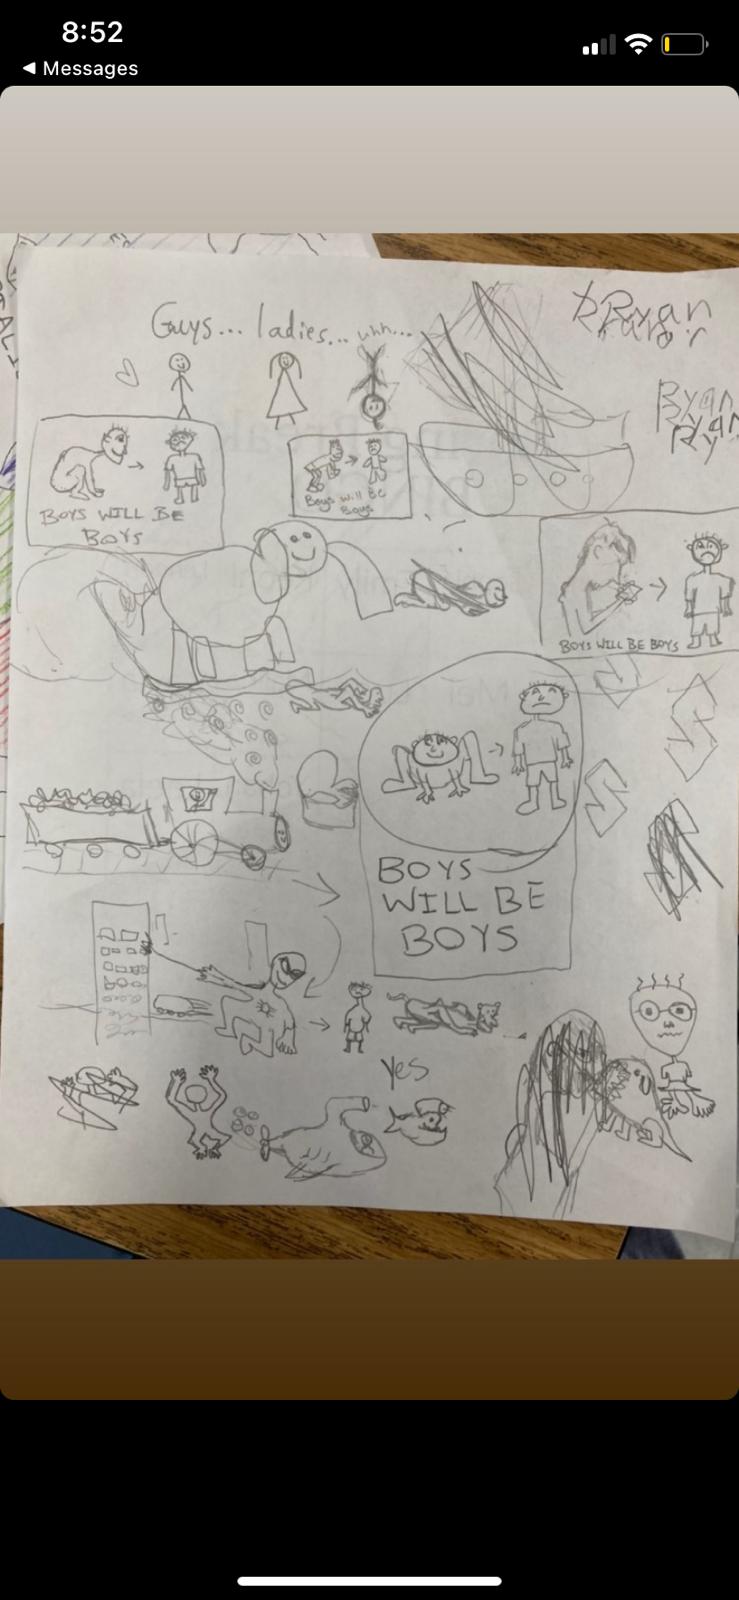 8:52
◀ Messages
Guys... ladies... uhh...
Ryan
Ryan
Ryan
Ry
BOYS WILL BE
BOYS
Boys will Be
Boys
BOYS WILL BE BOYS
BOYS
WILL BE
BOYS
yes